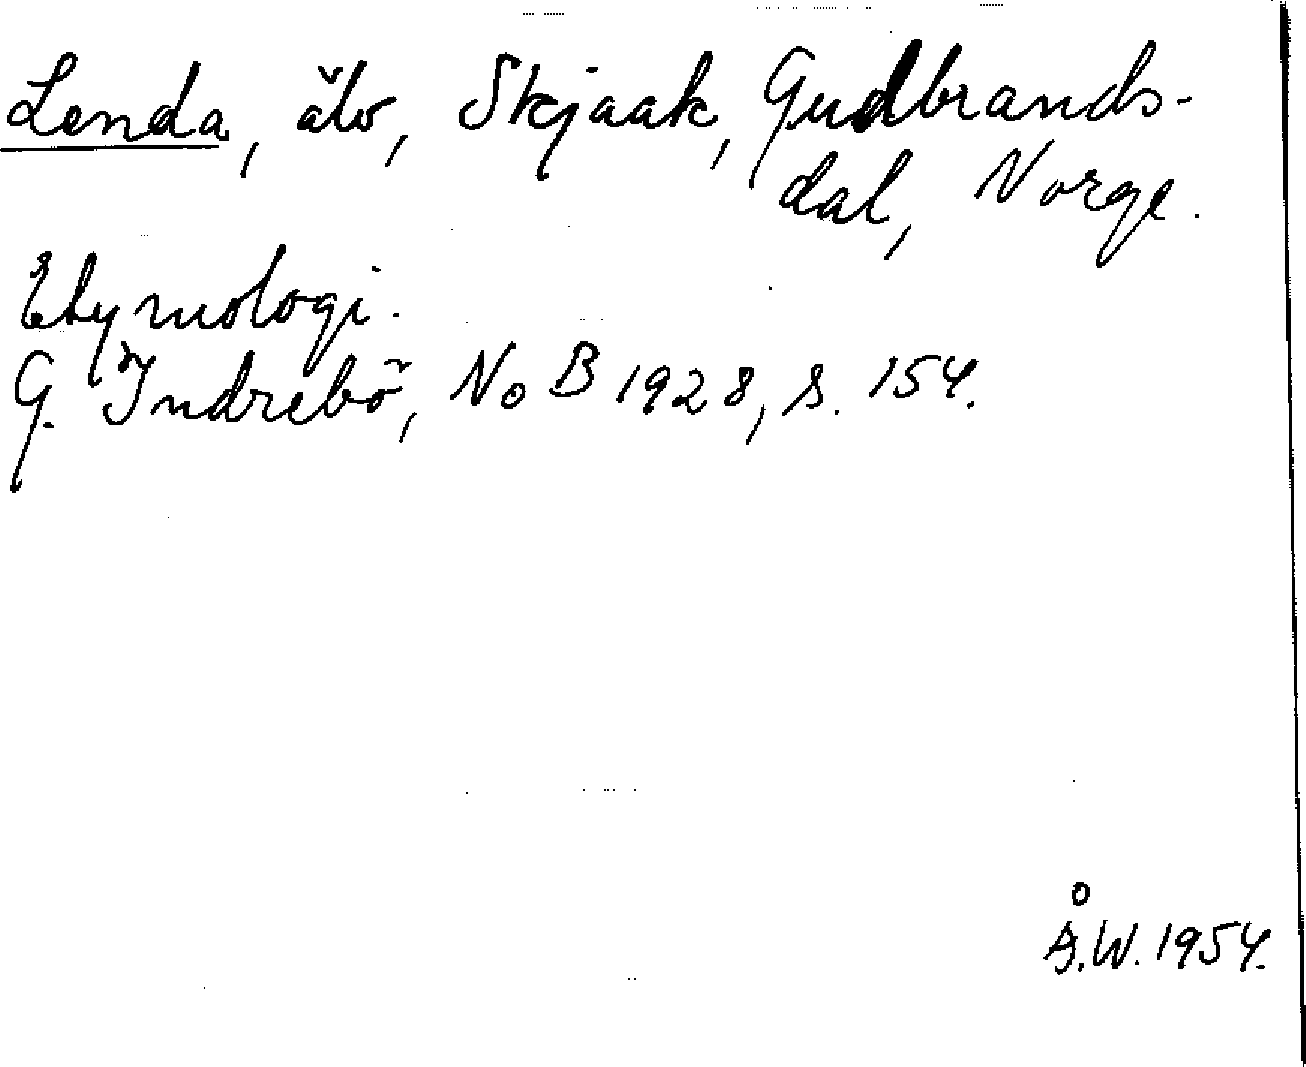 Lenda, älv, Skjaak, Gudbrands-
dal, Norge.
Etymologi.
G. Indrebö, NoB 1928, s. 154.
Å.W. 1954.